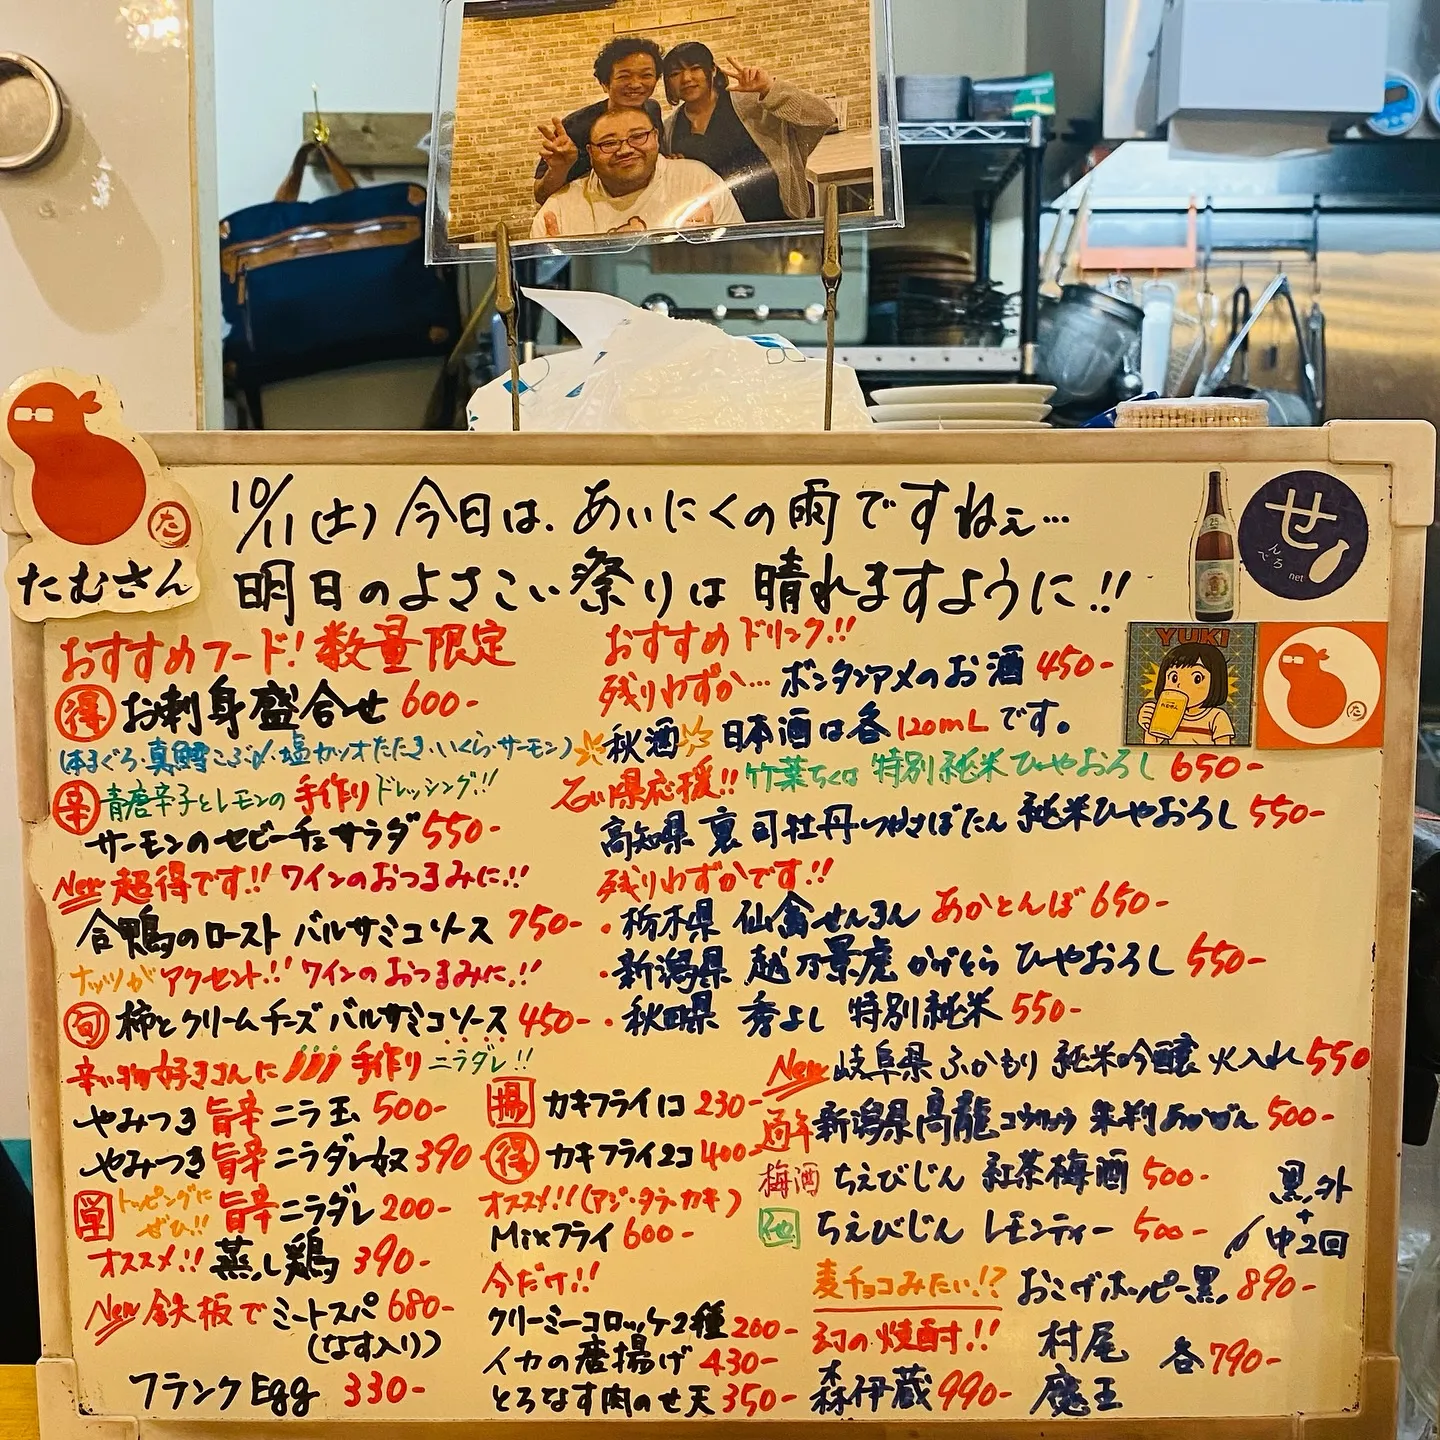 10/11(土) 今日は、あいにくの雨ですねぇ…
明日のよさこい祭りは晴れますように!!
たむさん
た
せ
んでろ
net
YUKI
おすすめフード!数量限定
得 お刺身盛合せ 600-
(本まぐろ・真鯛こぶ〆・塩カツオたたき・いくら・サーモン)
辛 青唐辛子とレモンの手作りドレッシング!!
サーモンのセビーチェサラダ 550-
New 超得です!! ワインのおつまみに!!
合鴨のロースト バルサミコソース 750-
ナッツがアクセント!! ワインのおつまみに!!
旬 柿とクリームチーズ バルサミコソース 450-
辛い物好きさんに 手作りニラダレ!!
やみつき旨辛ニラ玉 500-
やみつき旨辛ニラダレ奴 390-
単 トッピングにぜひ!! 旨辛ニラダレ 200-
オススメ!! 蒸し鶏 390-
New 鉄板でミートスパ 680-
(なす入り)
フランクEgg 330-
揚 カキフライ1コ 230-
得 カキフライ2コ 400-
オススメ!!(アジ・タラ・カキ)
Mixフライ 600-
今だけ!!
クリーミーコロッケ2種 200-
イカの唐揚げ 430-
とろなす肉のせ天 350-
おすすめドリンク!!
残りわずか…ボンタンアメのお酒 450-
秋酒 日本酒は各120mLです。
石川県応援!! 竹葉ちくは 特別純米ひやおろし 650-
高知県 裏司牡丹つかさぼたん 純米ひやおろし 550-
残りわずかです!!
・栃木県 仙禽せんきん あかとんぼ 650-
・新潟県 越乃景虎かげとら ひやおろし 550-
・秋田県 秀よし 特別純米 550-
New 岐阜県 ふかもり 純米吟醸 火入れ 550
新潟県 高龍 500-
梅酒 ちえびじん 紅茶梅酒 500-
他 ちえびじん レモンティー 500-
麦チョコみたい!? おこげホッピー黒 890-
黒,外
+
中2回
幻の焼酎!!
森伊蔵 990-
村尾
魔王
各790-